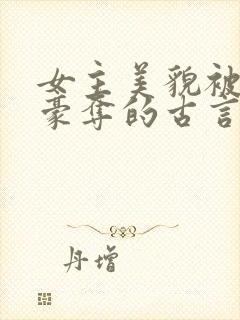 女主美貌被
豪夺的古言
丹增